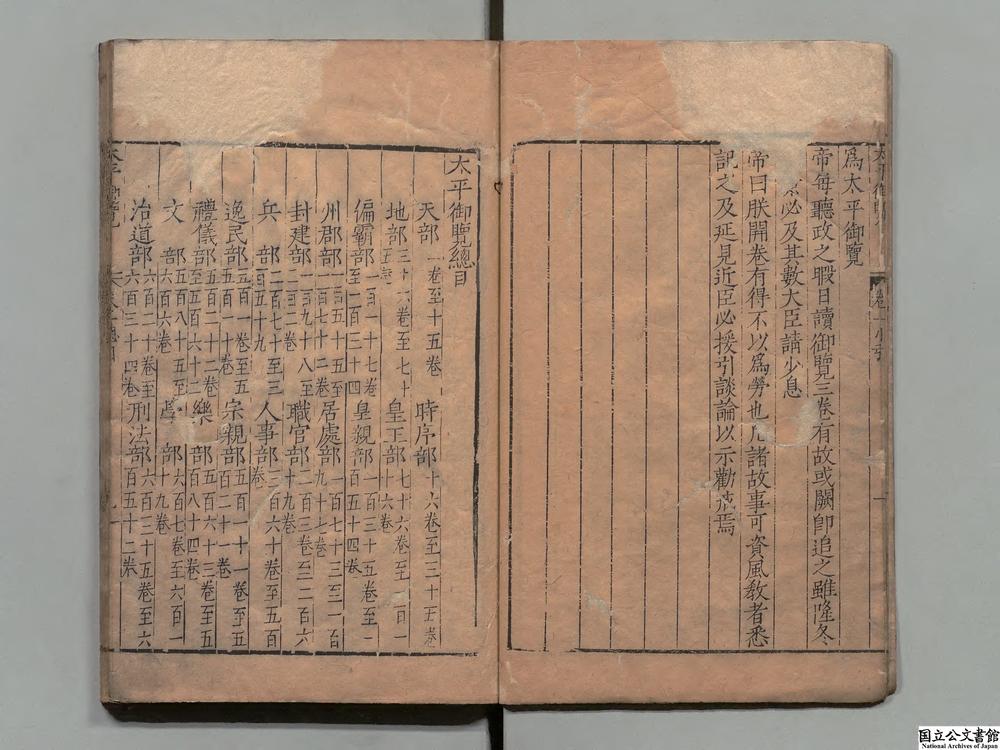 為太平御覽
帝每聽政之暇日讀御覽三卷有故或闕卽追之雖隆冬
必及其數大臣請少息
帝曰朕開卷有得不以為勞也凡諸故事可資風教者悉
記之及延見近臣必援引談論以示勸戒焉
太平御覽總目
天部一卷至十五卷 時序部十六卷至三十五卷
地部三十六卷至七十五卷 皇王部七十六卷至一百一十六卷
偏霸部一百一十七卷至一百三十四 皇親部一百三十五卷至一百五十四卷
州郡部一百五十五至一百七十二卷 居處部一百七十三至一百九十七卷
封建部一百九十八至二百二卷 職官部二百三卷至二百六十九卷
兵部二百七十至三百五十九 人事部三百六十卷至五百卷
逸民部五百一卷至五百一十卷 宗親部五百一十一卷至五百二十一卷
禮儀部五百二十二卷至五百六十二 樂部五百六十三卷至五百八十四卷
文部五百八十五至六百六卷 學部六百七卷至六百一十九卷
治道部六百二十卷至六百三十四卷 刑法部六百三十五卷至六百五十二卷
国立公文書館
National Archives of Japan